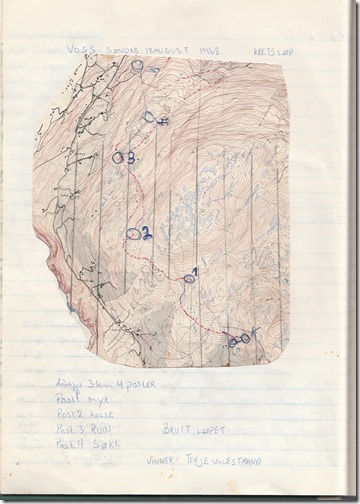 VOSS SØNDAG 18 AUGUST 1968 KRETSLØP
4
3
2
1
Løype 3 5km 4 POSTER
Post 1 MYR
Post 2 KOLLE
Post 3 RUIN BRUTT LØPET
Post 4 SØKK
VINNER: TERJE VALESTRAND